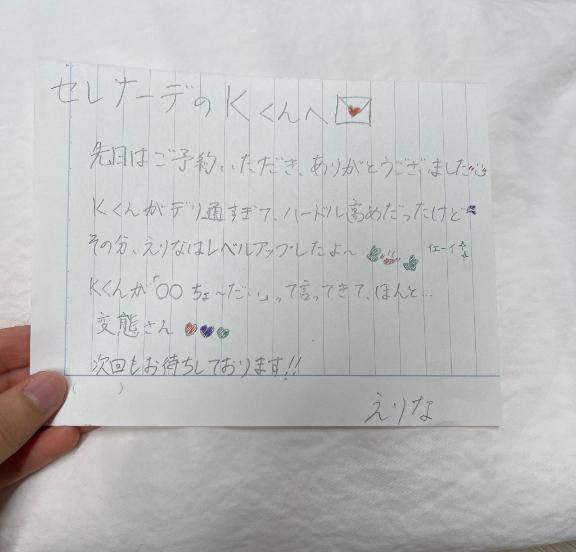 セレナーデのKくんへ
先日はご予約、いただき、ありがとうございました
Kくんがデリ通すぎて、ハードル高めだったけど
その分、えりなはレベルアップしたよ〜 イエーイ
Kくんが「〇〇ちょ〜だい」って言ってきて、ほんと…
変態さん
次回もお待ちしております!!
( )
えりな